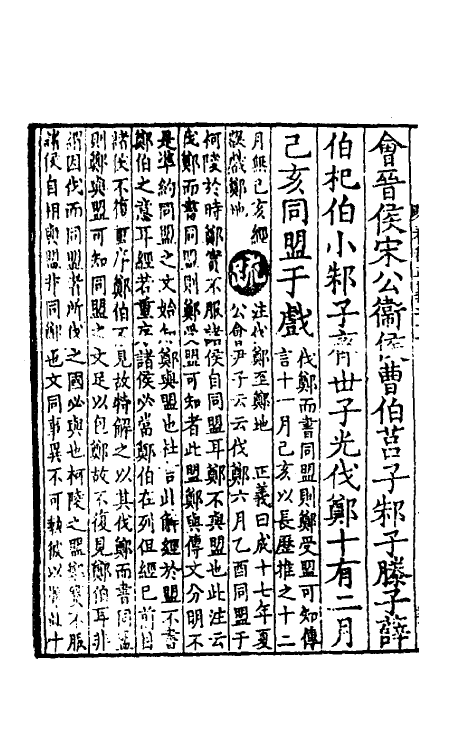 會晉侯宋公衞侯曹伯莒子邾子滕子薛
伯杞伯小邾子齊世子光伐鄭十有二月
己亥同盟于戲
伐鄭而書同盟則鄭受盟可知傳
言十一月己亥以長歷推之十二
月無己亥經
誤戲鄭地
疏
注伐鄭至鄭地 正義曰成十七年夏
公會尹子云云伐鄭六月乙酉同盟于
柯陵於時鄭實不服諸侯自同盟耳鄭不與盟也此注云
伐鄭而書同盟則鄭受盟可知者此盟鄭與傳文分明不
是準約同盟之文始知鄭與盟也杜 此解經於盟不書
鄭伯之意耳經若重序諸侯必當鄭伯在列但經已前目
諸侯不復重序鄭伯 見故特解之以其伐鄭而書同盟
則鄭與盟可知同盟之文足以包鄭故不復見鄭伯耳非
謂因伐而同盟者所伐之國必與也柯陵之盟鄭實不服
諸侯自相與盟非同鄭也文同事異不可執彼以 此十